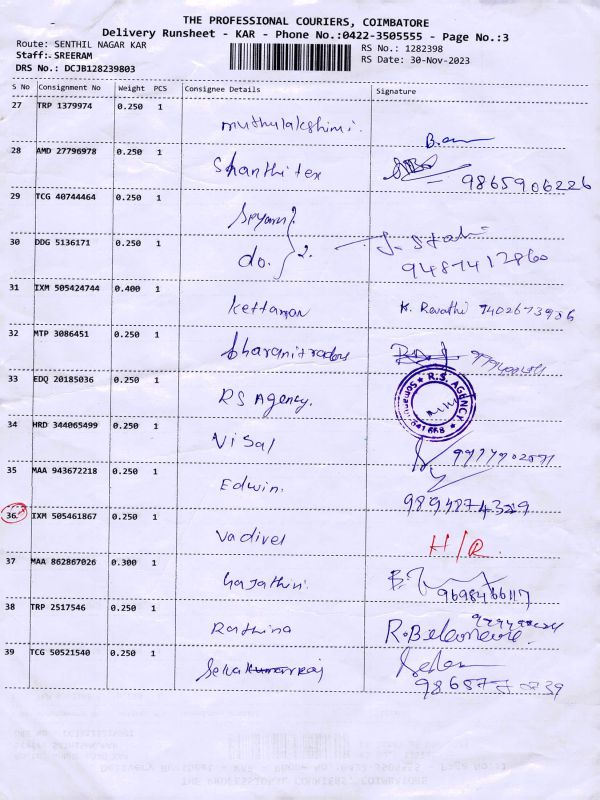 THE PROFESSIONAL COURIERS, COIMBATORE
Delivery Runsheet - KAR - Phone No.:0422-3505555 - Page No.:3
Route: SENTHIL NAGAR KAR RS No.: 1282398
Staff:- SREERAM RS Date: 30-Nov-2023
DRS No.: DCJB128239803
S No Consignment No Weight PCS Consignee Details Signature
27 TRP 1379974 0.250 1 muthulakshimi.
28 AMD 27796978 0.250 1 Shanthi tex 9865906226
29 TCG 40744464 0.250 1
30 DDG 5136171 0.250 1 do. 2. 9487412860
31 IXM 505424744 0.400 1 K. Revathi 9402673986
32 MTP 3086451 0.250 1
33 EDQ 20185036 0.250 1 RS Agency. R.S. AGENCY
34 HRD 344065499 0.250 1 Visal
35 MAA 943672218 0.250 1 Edwin. 9894874329
36 IXM 505461867 0.250 1 Vadivel H/R
37 MAA 862867026 0.300 1 9698466117
38 TRP 2517546 0.250 1 Rathina
39 TCG 50521540 0.250 1